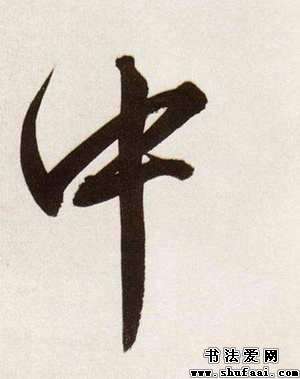 中
书法爱网
www.shufaai.com